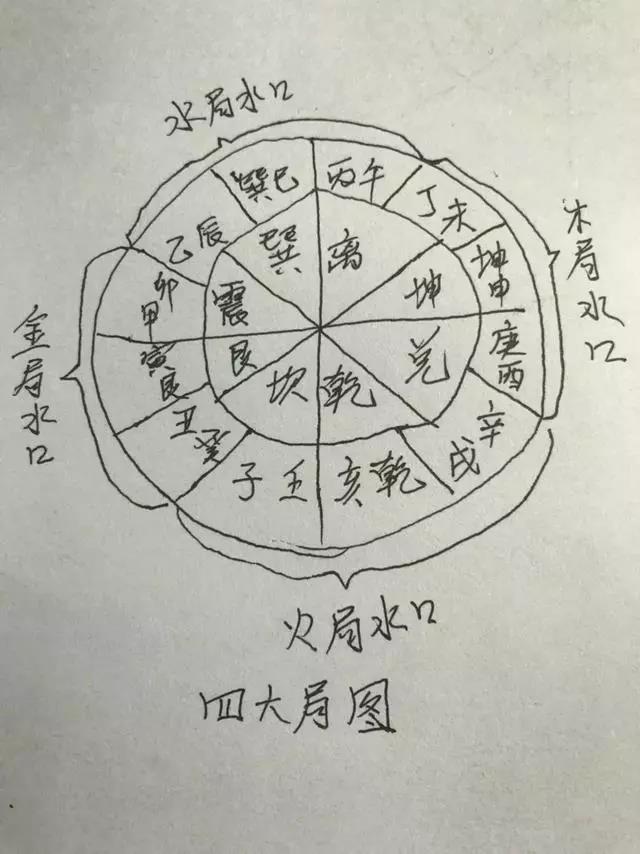 水局水口
木局水口
金局水口
巽巳
丙午
丁未
坤申
庚酉
辛戌
乾亥
壬子
癸丑
艮寅
甲卯
乙辰
巽
离
坤
兑
乾
坎
艮
震
火局水口
四大局图